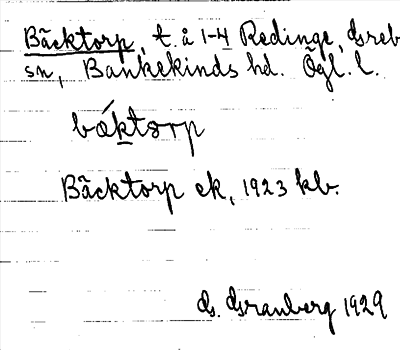 Bäcktorp, t. å 1-4 Redinge, Grebo
sn, Bankekinds hd. Ögl. l.
bǽktorp
Bäcktorp ek, 1923 kb.
G. Granberg 1929